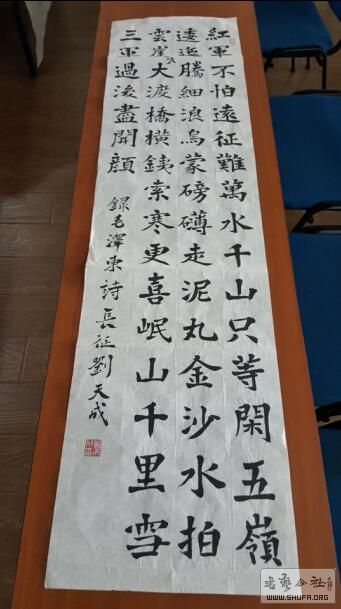 紅軍不怕遠征難萬水千山只等閑五嶺
逶迤騰細浪烏蒙磅礴走泥丸金沙水拍
雲崖大渡橋橫銕索寒更喜岷山千里雪
三軍過後盡開顏
錄毛澤東詩長征劉天成
WWW.SHUFA.ORG